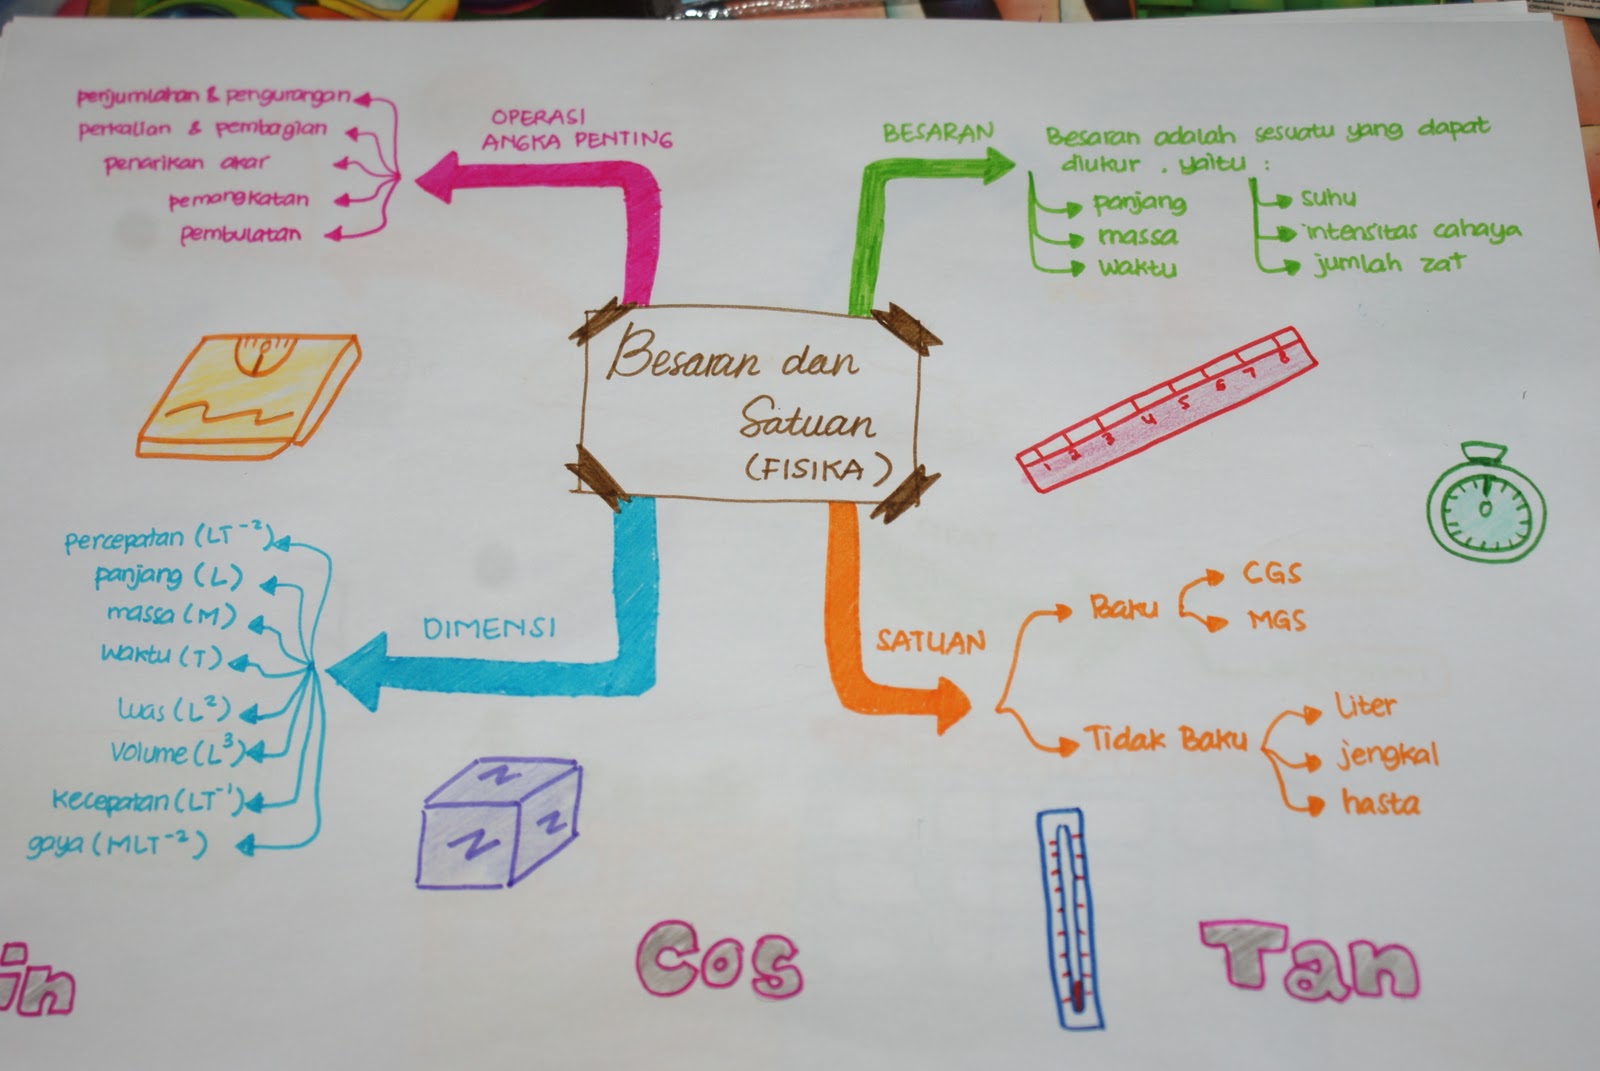 Besaran dan
Satuan
(FISIKA)
OPERASI
ANGKA PENTING
penjumlahan & pengurangan
perkalian & pembagian
penarikan akar
pemangkatan
pembulatan
BESARAN
Besaran adalah sesuatu yang dapat
diukur, yaitu :
panjang
massa
waktu
suhu
intensitas cahaya
jumlah zat
1 2 3 4 5 6 7 8
0
0
DIMENSI
percepatan (LT⁻²)
panjang (L)
massa (M)
waktu (T)
luas (L²)
Volume (L³)
kecepatan (LT⁻¹)
gaya (MLT⁻²)
SATUAN
Baku
CGS
MGS
Tidak Baku
liter
jengkal
hasta
in
Cos
Tan